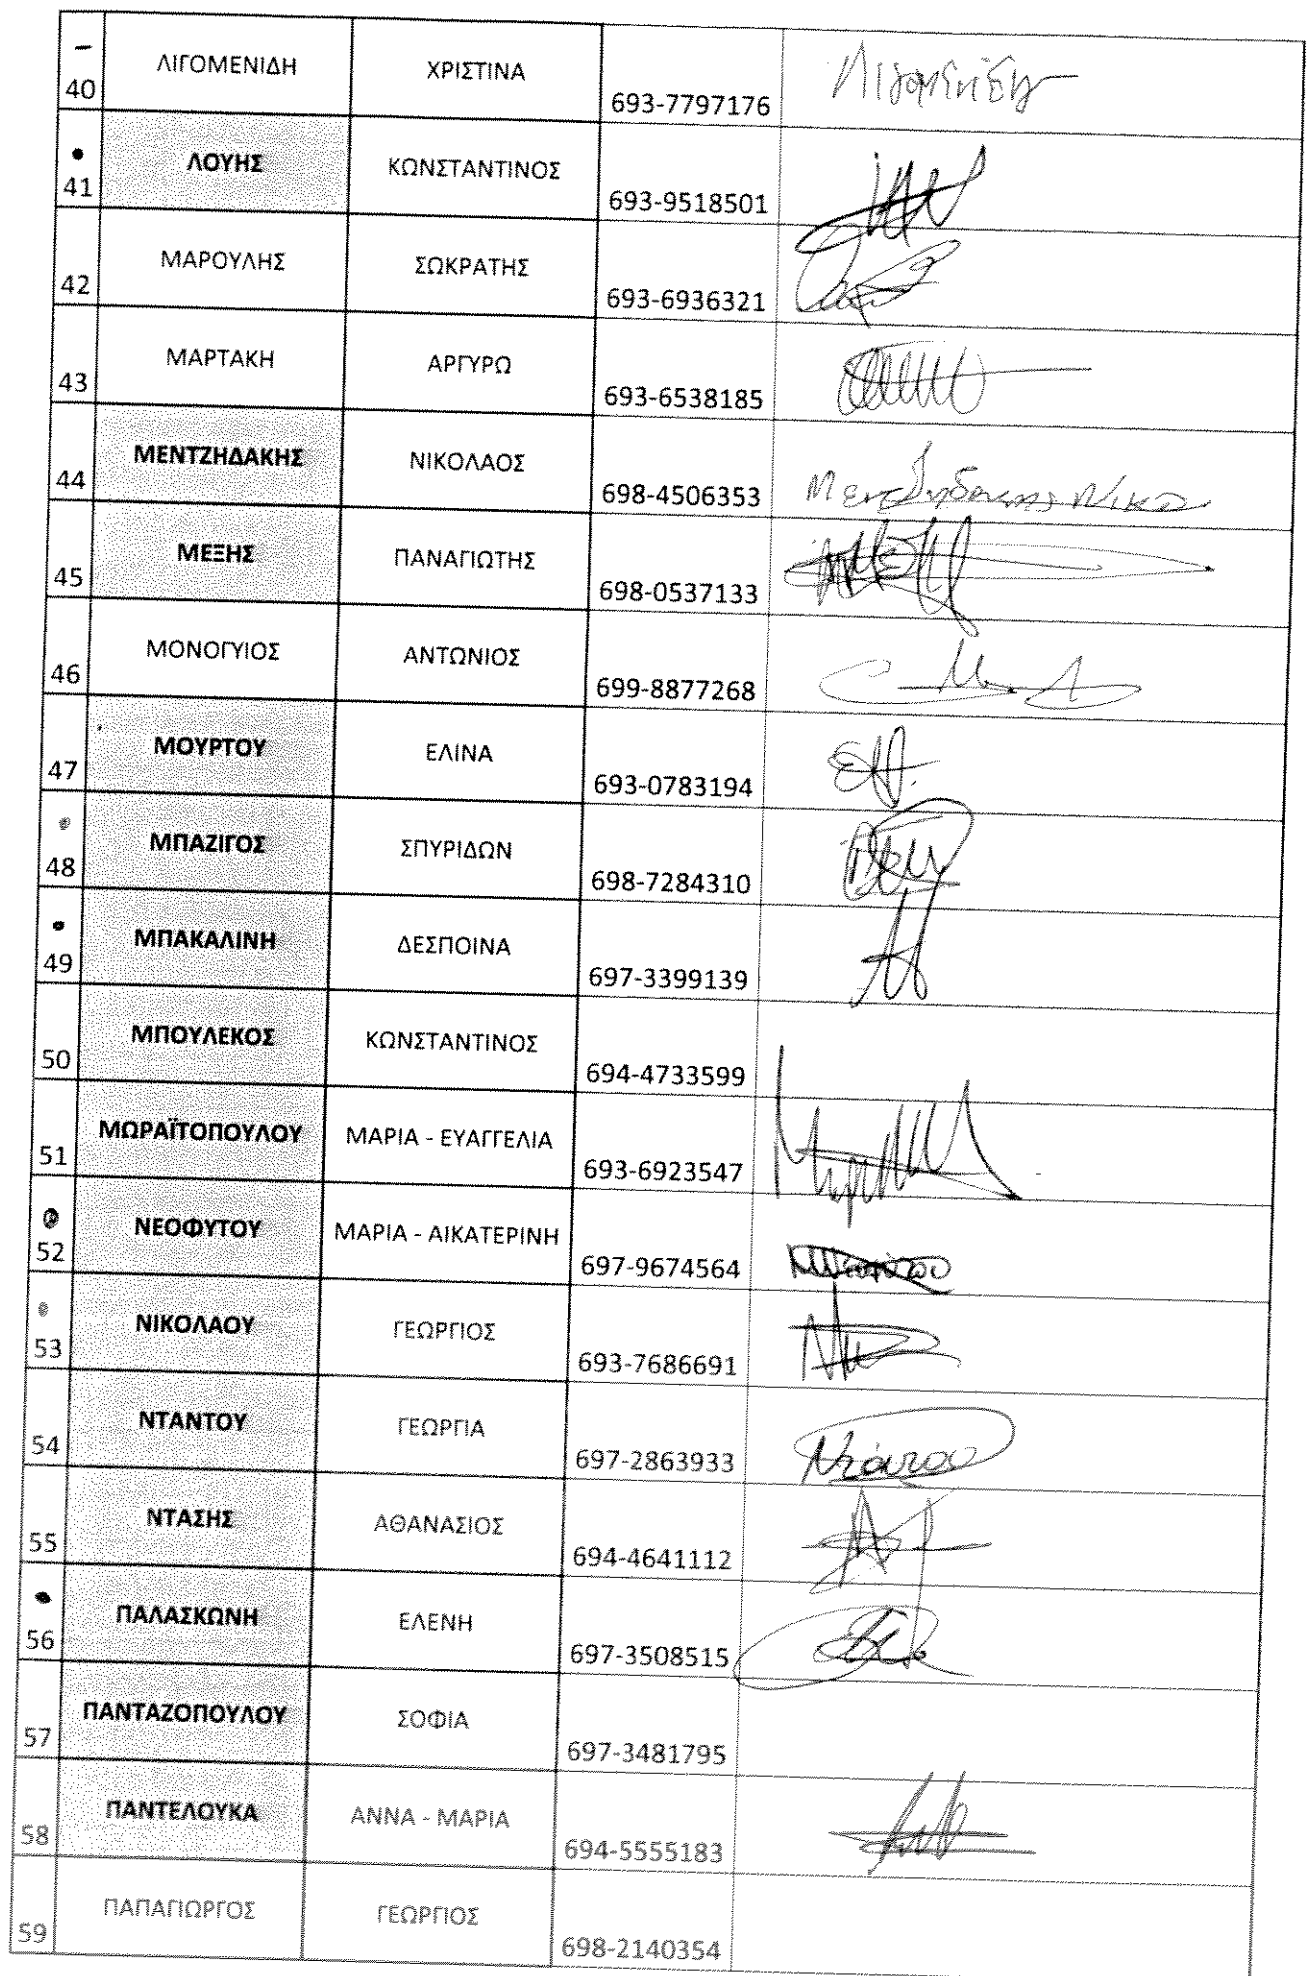 40 ΛΙΓΟΜΕΝΙΔΗ ΧΡΙΣΤΙΝΑ 693-7797176
41 ΛΟΥΗΣ ΚΩΝΣΤΑΝΤΙΝΟΣ 693-9518501
42 ΜΑΡΟΥΛΗΣ ΣΩΚΡΑΤΗΣ 693-6936321
43 ΜΑΡΤΑΚΗ ΑΡΓΥΡΩ 693-6538185
44 ΜΕΝΤΖΗΔΑΚΗΣ ΝΙΚΟΛΑΟΣ 698-4506353
45 ΜΕΞΗΣ ΠΑΝΑΓΙΩΤΗΣ 698-0537133
46 ΜΟΝΟΓΥΙΟΣ ΑΝΤΩΝΙΟΣ 699-8877268
47 ΜΟΥΡΤΟΥ ΕΛΙΝΑ 693-0783194
48 ΜΠΑΖΙΓΟΣ ΣΠΥΡΙΔΩΝ 698-7284310
49 ΜΠΑΚΑΛΙΝΗ ΔΕΣΠΟΙΝΑ 697-3399139
50 ΜΠΟΥΛΕΚΟΣ ΚΩΝΣΤΑΝΤΙΝΟΣ 694-4733599
51 ΜΩΡΑΪΤΟΠΟΥΛΟΥ ΜΑΡΙΑ - ΕΥΑΓΓΕΛΙΑ 693-6923547
52 ΝΕΟΦΥΤΟΥ ΜΑΡΙΑ - ΑΙΚΑΤΕΡΙΝΗ 697-9674564
53 ΝΙΚΟΛΑΟΥ ΓΕΩΡΓΙΟΣ 693-7686691
54 ΝΤΑΝΤΟΥ ΓΕΩΡΓΙΑ 697-2863933
55 ΝΤΑΣΗΣ ΑΘΑΝΑΣΙΟΣ 694-4641112
56 ΠΑΛΑΣΚΩΝΗ ΕΛΕΝΗ 697-3508515
57 ΠΑΝΤΑΖΟΠΟΥΛΟΥ ΣΟΦΙΑ 697-3481795
58 ΠΑΝΤΕΛΟΥΚΑ ΑΝΝΑ - ΜΑΡΙΑ 694-5555183
59 ΠΑΠΑΓΙΩΡΓΟΣ ΓΕΩΡΓΙΟΣ 698-2140354